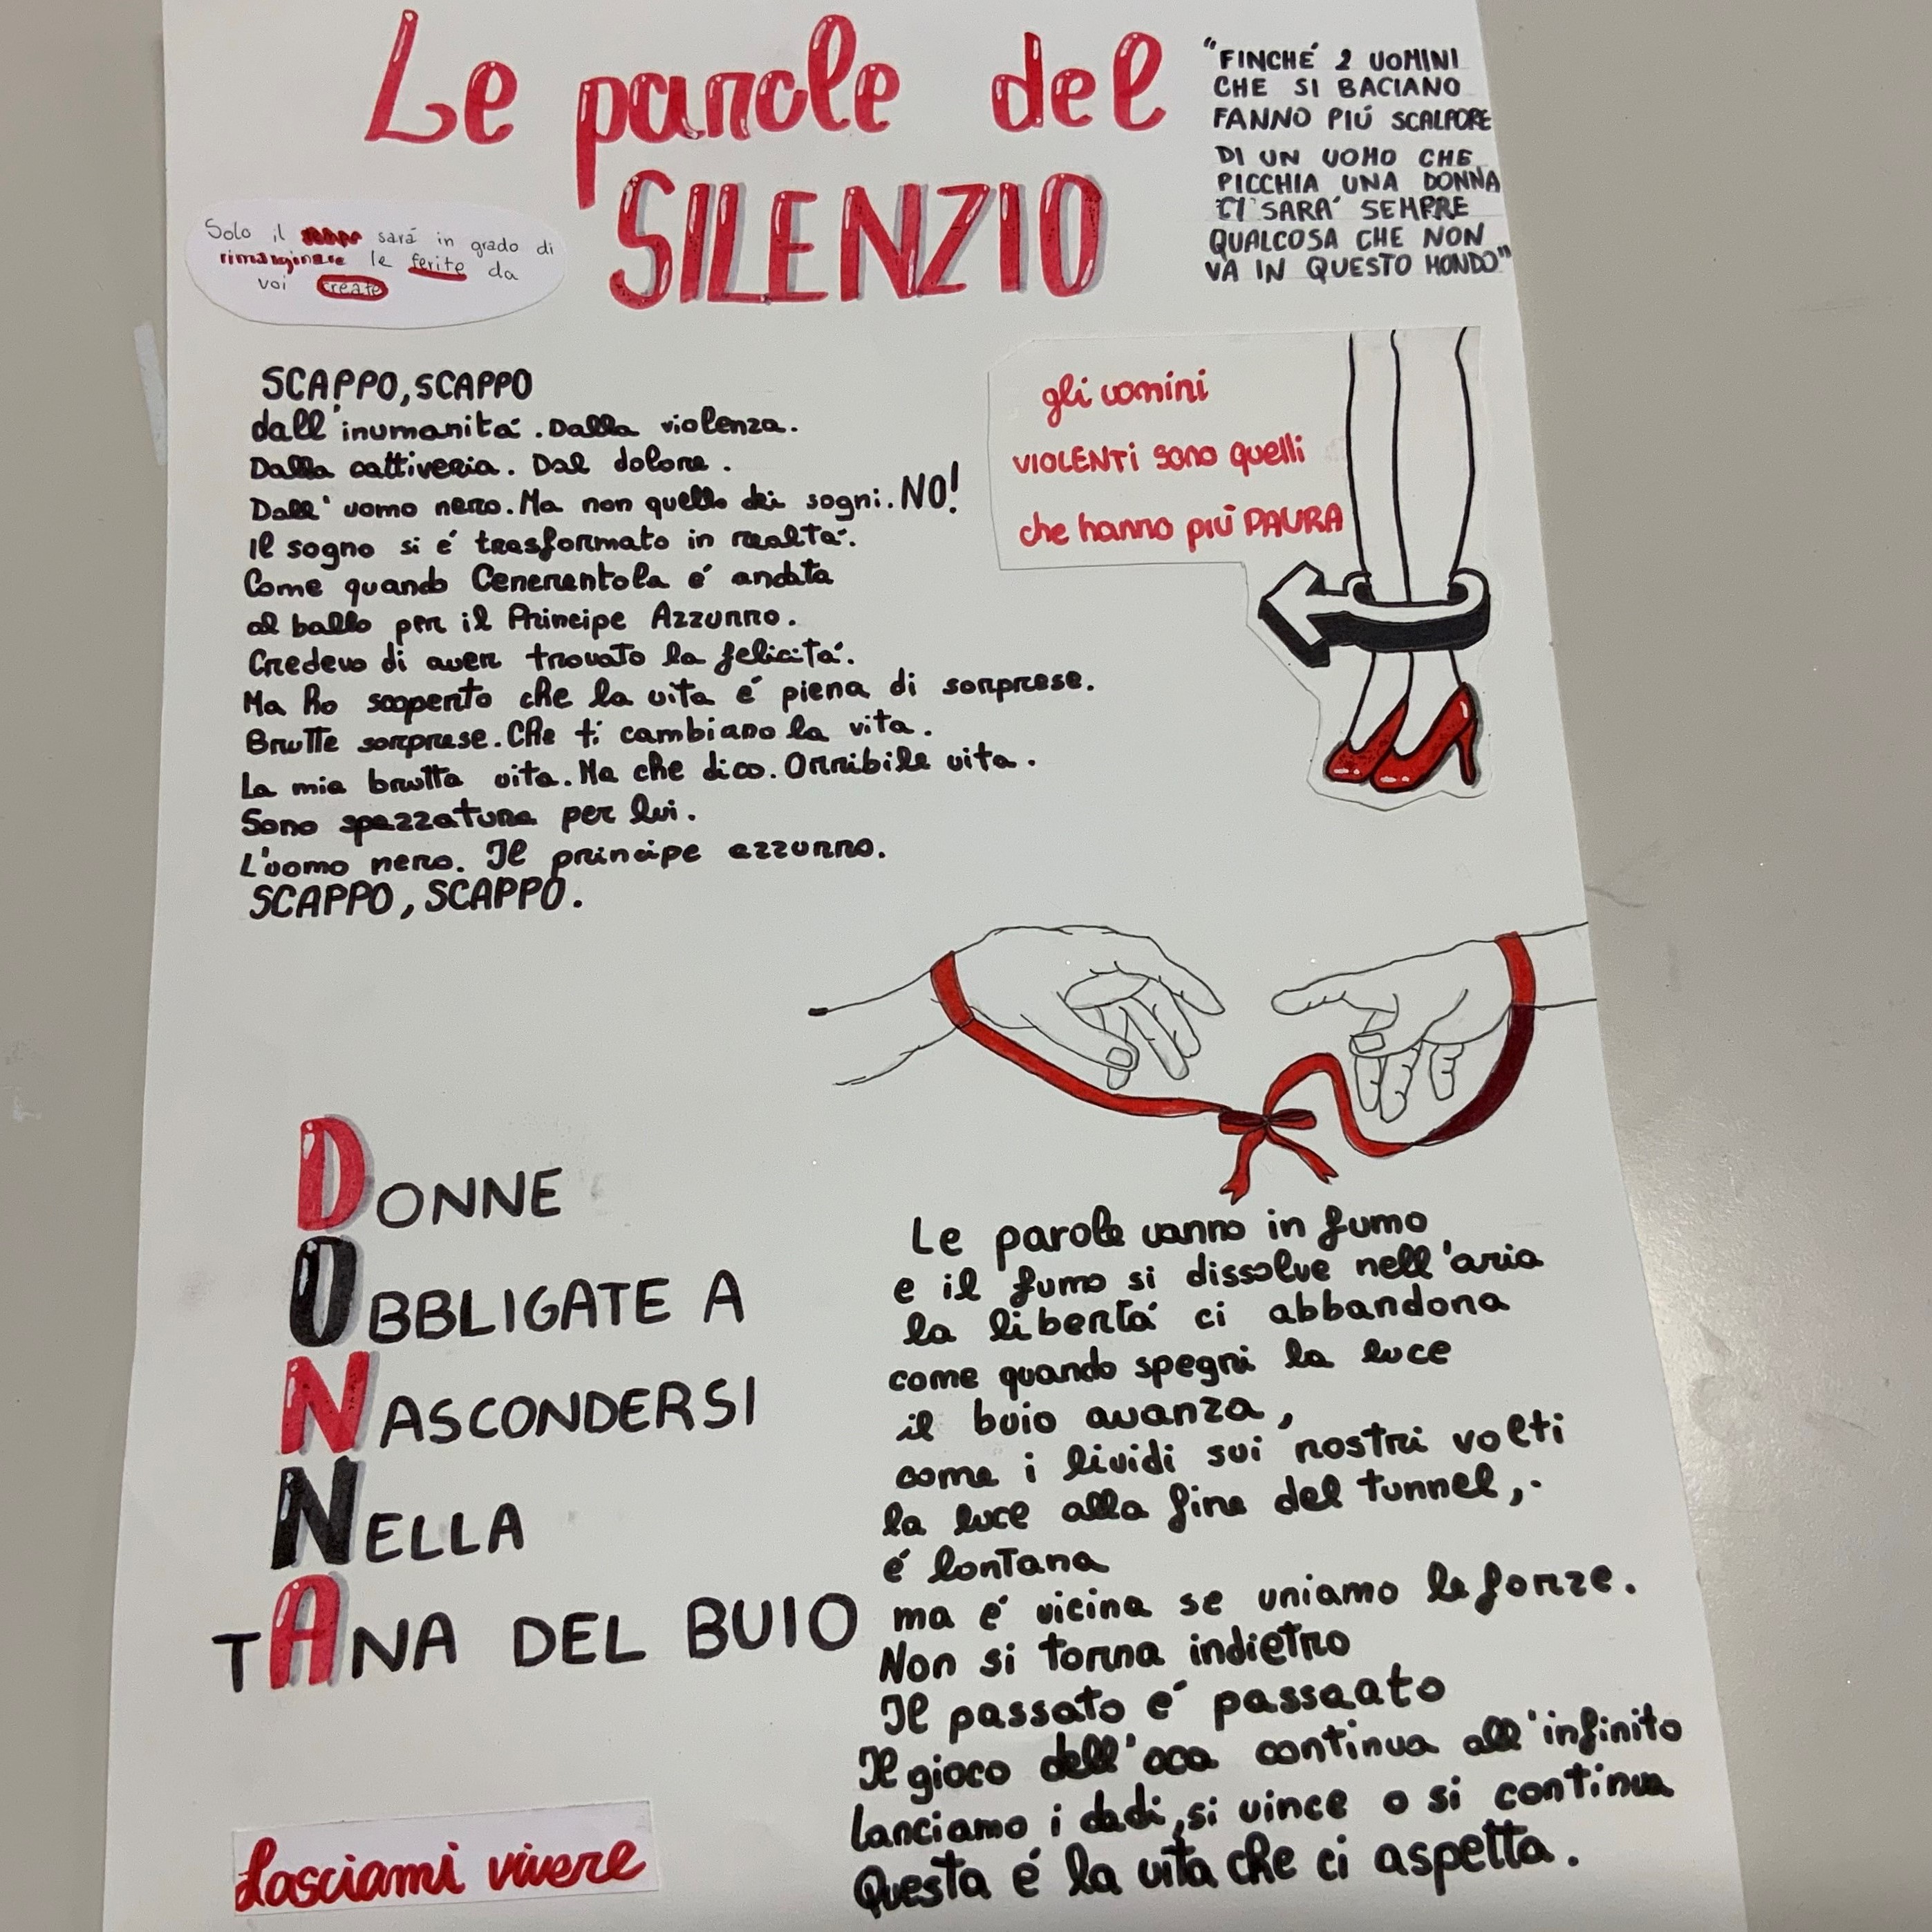 Le parole del
SILENZIO
"FINCHÉ 2 UOMINI
CHE SI BACIANO
FANNO PIÚ SCALPORE
DI UN UOMO CHE
PICCHIA UNA DONNA
CI SARA' SEMPRE
QUALCOSA CHE NON
VA IN QUESTO MONDO"
Solo il sará in grado di
rimarginare le ferite da
voi create
SCAPPO, SCAPPO
dall'inumanitá. Dalla violenza.
Dalla cattiveria. Dal dolore.
Dall'uomo nero. Ma non quello dei sogni. NO!
Il sogno si é trasformato in realtá.
Come quando Cenerentola é andata
al ballo per il Principe Azzurro.
Credevo di aver trovato la felicitá.
Ma ho scoperto che la vita é piena di sorprese.
Brutte sorprese. Che ti cambiano la vita.
La mia brutta vita. Ma che dico. Orribile vita.
Sono spazzatura per lui.
L'uomo nero. Il principe azzurro.
SCAPPO, SCAPPO.
gli uomini
VIOLENTI sono quelli
che hanno piú PAURA
DONNE
OBBLIGATE A
NASCONDERSI
NELLA
TANA DEL BUIO
Lasciami vivere
Le parole vanno in fumo
e il fumo si dissolve nell'aria
la libertá ci abbandona
come quando spegni la luce
il buio avanza,
come i lividi sui nostri volti
la luce alla fine del tunnel,.
é lontana
ma é vicina se uniamo le forze.
Non si torna indietro
Il passato é passaato
Il gioco dell'oca continua all'infinito
lanciamo i dadi, si vince o si continua
Questa é la vita che ci aspetta.